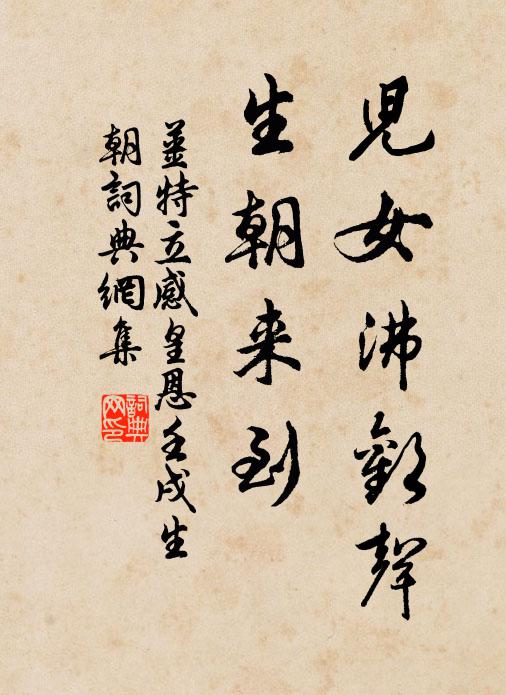 兒女沸歡聲
生朝来到
姜特立感皇恩壬戌生
朝詞典網集
詞典网印